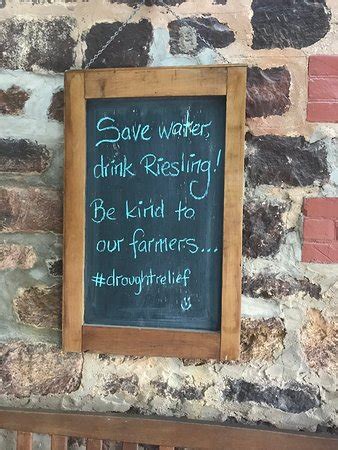 Save water,
drink Riesling!
Be kind to
our farmers...
#droughtrelief